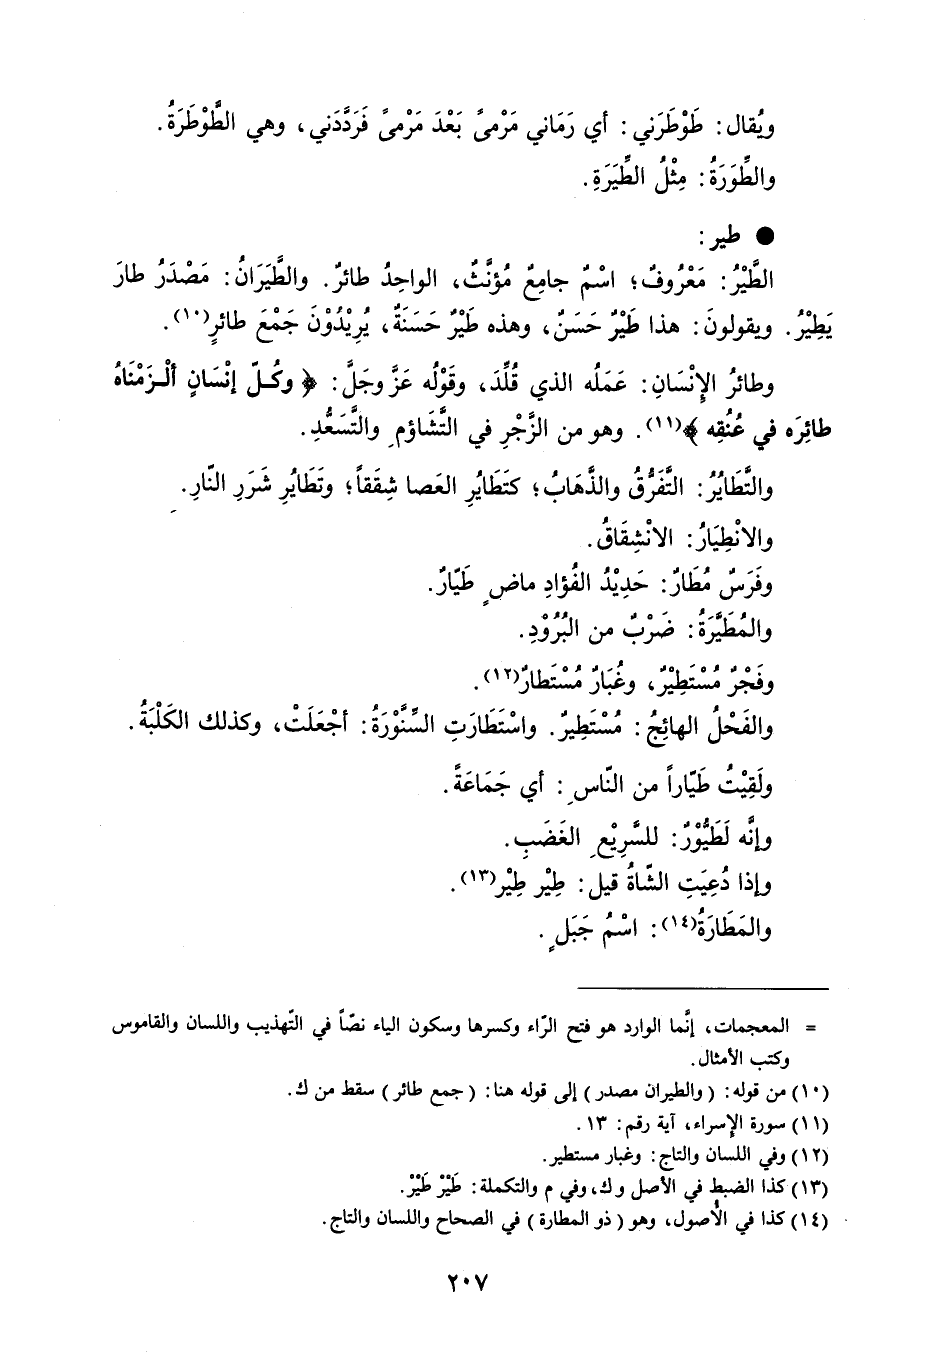 ويُقال: طَوْطَرَني: أي رَمَاني مَرْمىً بَعْدَ مَرْمىً فَرَدَّدَني، وهي الطَّوْطَرَةُ.
والطِّوَرَةُ: مِثْلُ الطِّيَرَةِ.
● طير:
الطَّيْرُ: مَعْرُوفٌ؛ اسْمٌ جامِعٌ مُؤنَّثٌ، الواحِدُ طائرٌ. والطَّيَرَانُ: مَصْدَرُ طارَ
يَطِيْرُ. ويقولونَ: هذا طَيْرٌ حَسَنٌ، وهذه طَيْرٌ حَسَنَةٌ، يُرِيْدُوْنَ جَمْعَ طائرٍ(١٠).
وطائرُ الإِنْسَانِ: عَمَلُه الذي قُلِّدَ، وقَوْلُه عَزَّ وجَلَّ: ﴿ وكُلّ إنْسَانٍ ألْـزَمْنَاهُ
طائِرَه في عُنُقِه ﴾(١١). وهو من الزَّجْرِ في التَّشَاؤمِ والتَّسَعُّدِ.
والتَّطَايُرُ: التَّفَرُّقُ والذَّهَابُ؛ كتَطَايُرِ العَصا شِقَقاً؛ وتَطَايُرِ شَرَرِ النّارِ.
والانْطِيَارُ: الانْشِقَاقُ.
وفَرَسٌ مُطَارٌ: حَدِيْدُ الفُؤادِ ماضٍ طَيّارٌ.
والمُطَيَّرَةُ: ضَرْبٌ من البُرُوْدِ.
وفَجْرٌ مُسْتَطِيْرٌ، وغُبَارٌ مُسْتَطارٌ(١٢).
والفَحْلُ الهائِجُ: مُسْتَطِيرٌ. واسْتَطَارَتِ السِّنَّوْرَةُ: أجْعَلَتْ، وكذلك الكَلْبَةُ.
ولَقِيْتُ طَيّاراً من النّاسِ: أي جَمَاعَةً.
وإنَّه لَطَيُّوْرٌ: للسَّرِيْعِ الغَضَبِ.
وإذا دُعِيَتِ الشّاةُ قيل: طِيْر طِيْر(١٣).
والمَطَارَةُ(١٤): اسْمُ جَبَلٍ.
= المعجمات، إنَّما الوارد هو فتح الرّاء وكسرها وسكون الياء نصّاً في التّهذيب واللسان والقاموس
وكتب الأمثال.
(١٠) من قوله: ( والطيران مصدر ) إلى قوله هنا: ( جمع طائر ) سقط من ك.
(١١) سورة الإسراء، آية رقم: ١٣.
(١٢) وفي اللسان والتاج: وغبار مستطير.
(١٣) كذا الضبط في الأصل و ك، وفي م والتكملة: طَيْرْ طَيْرْ.
(١٤) كذا في الأصول، وهو ( ذو المطارة ) في الصحاح واللسان والتاج.
٢٠٧